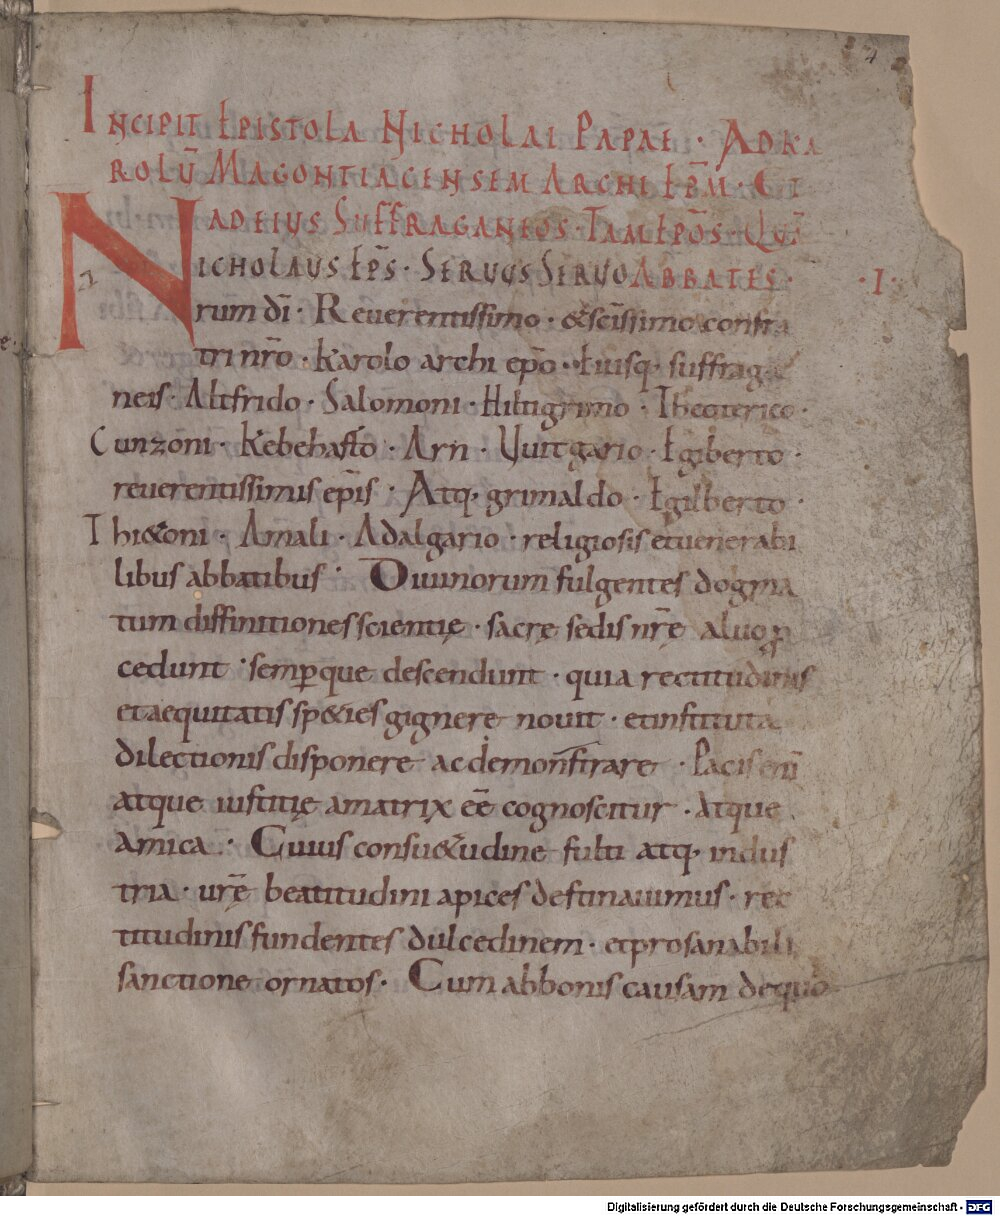 4
INCIPIT EPISTOLA NICHOLAI PAPAE · AD KA
ROLŪ MAGONTIACENSEM ARCHI EP̄M · ET
AD EIUS SUFFRAGANEOS · TAM EP̄OS · QUĀ
NICHOLAUS EP̄S · SERUUS SERUO ABBATES · · I ·
rum dī · Reuerentissimo · & sc̄issimo confra
tri nr̄o · Karolo archi ep̄o · Eiusq· suffraga
neis · Altfrido · Salomoni · Hiltigrimo · Theoterico ·
Cunzoni · Kebehafto · Arn · Uuitgario · Egiberto ·
reuerentissimis ep̄is · Atq· grimaldo · Egilberto ·
Thi&oni · Amali · Adalgario · religiosis et uenerabi
libus abbatibus · Diuinorum fulgentes dogma
tum diffinitiones scientię · sacrę sedis nr̄ę aluo ꝓ
cedunt · semꝑque descendunt · quia rectitudinis
et aequitatis sp&ies gignere nouit · et instituta
dilectionis disponere ac demonstrare · Pacis enī
atque iustitię amatrix eē cognoscitur · Atque
amica · Cuius consu&udine fulti atq· indus
tria · ur̄ę beatitudini apices destinauimus · rec
titudinis fundentes dulcedinem · et pro sanabili
sanctione ornatos · Cum abbonis causam de quo
Digitalisierung gefördert durch die Deutsche Forschungsgemeinschaft - DFG